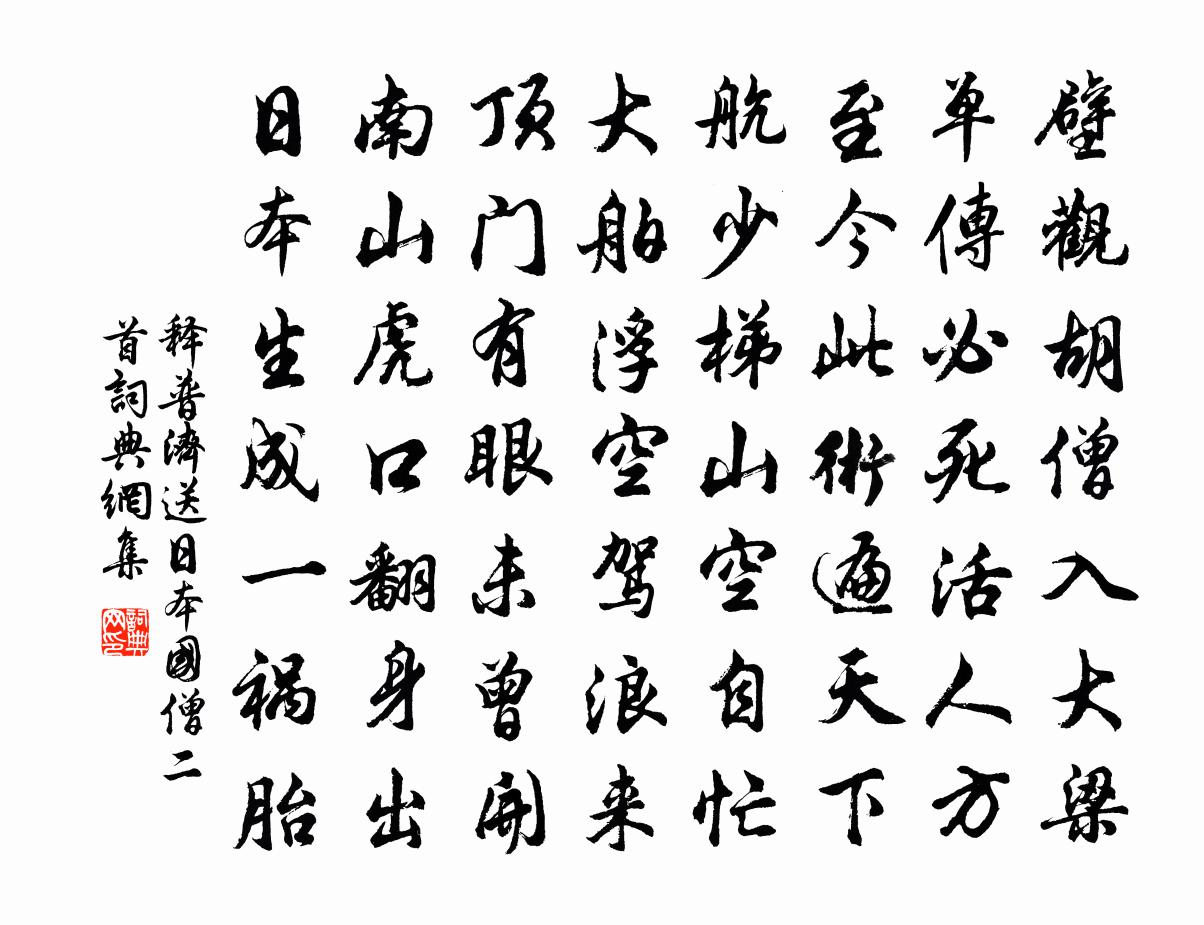 壁觀胡僧入大梁
单傳必死活人方
至今此術遍天下
航少梯山空自忙
大舶浮空駕浪来
顶门有眼未曾開
南山虎口翻身出
日本生成一祸胎
释普濟送日本國僧二
首詞典網集
詞典
网印